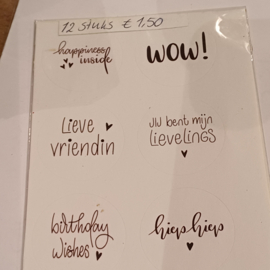 12 Stuks € 1,50
happiness
inside
WOW!
Lieve
vriendin
JIJ bent mijn
LIEVELINGS
birthday
wishes
hiep hiep